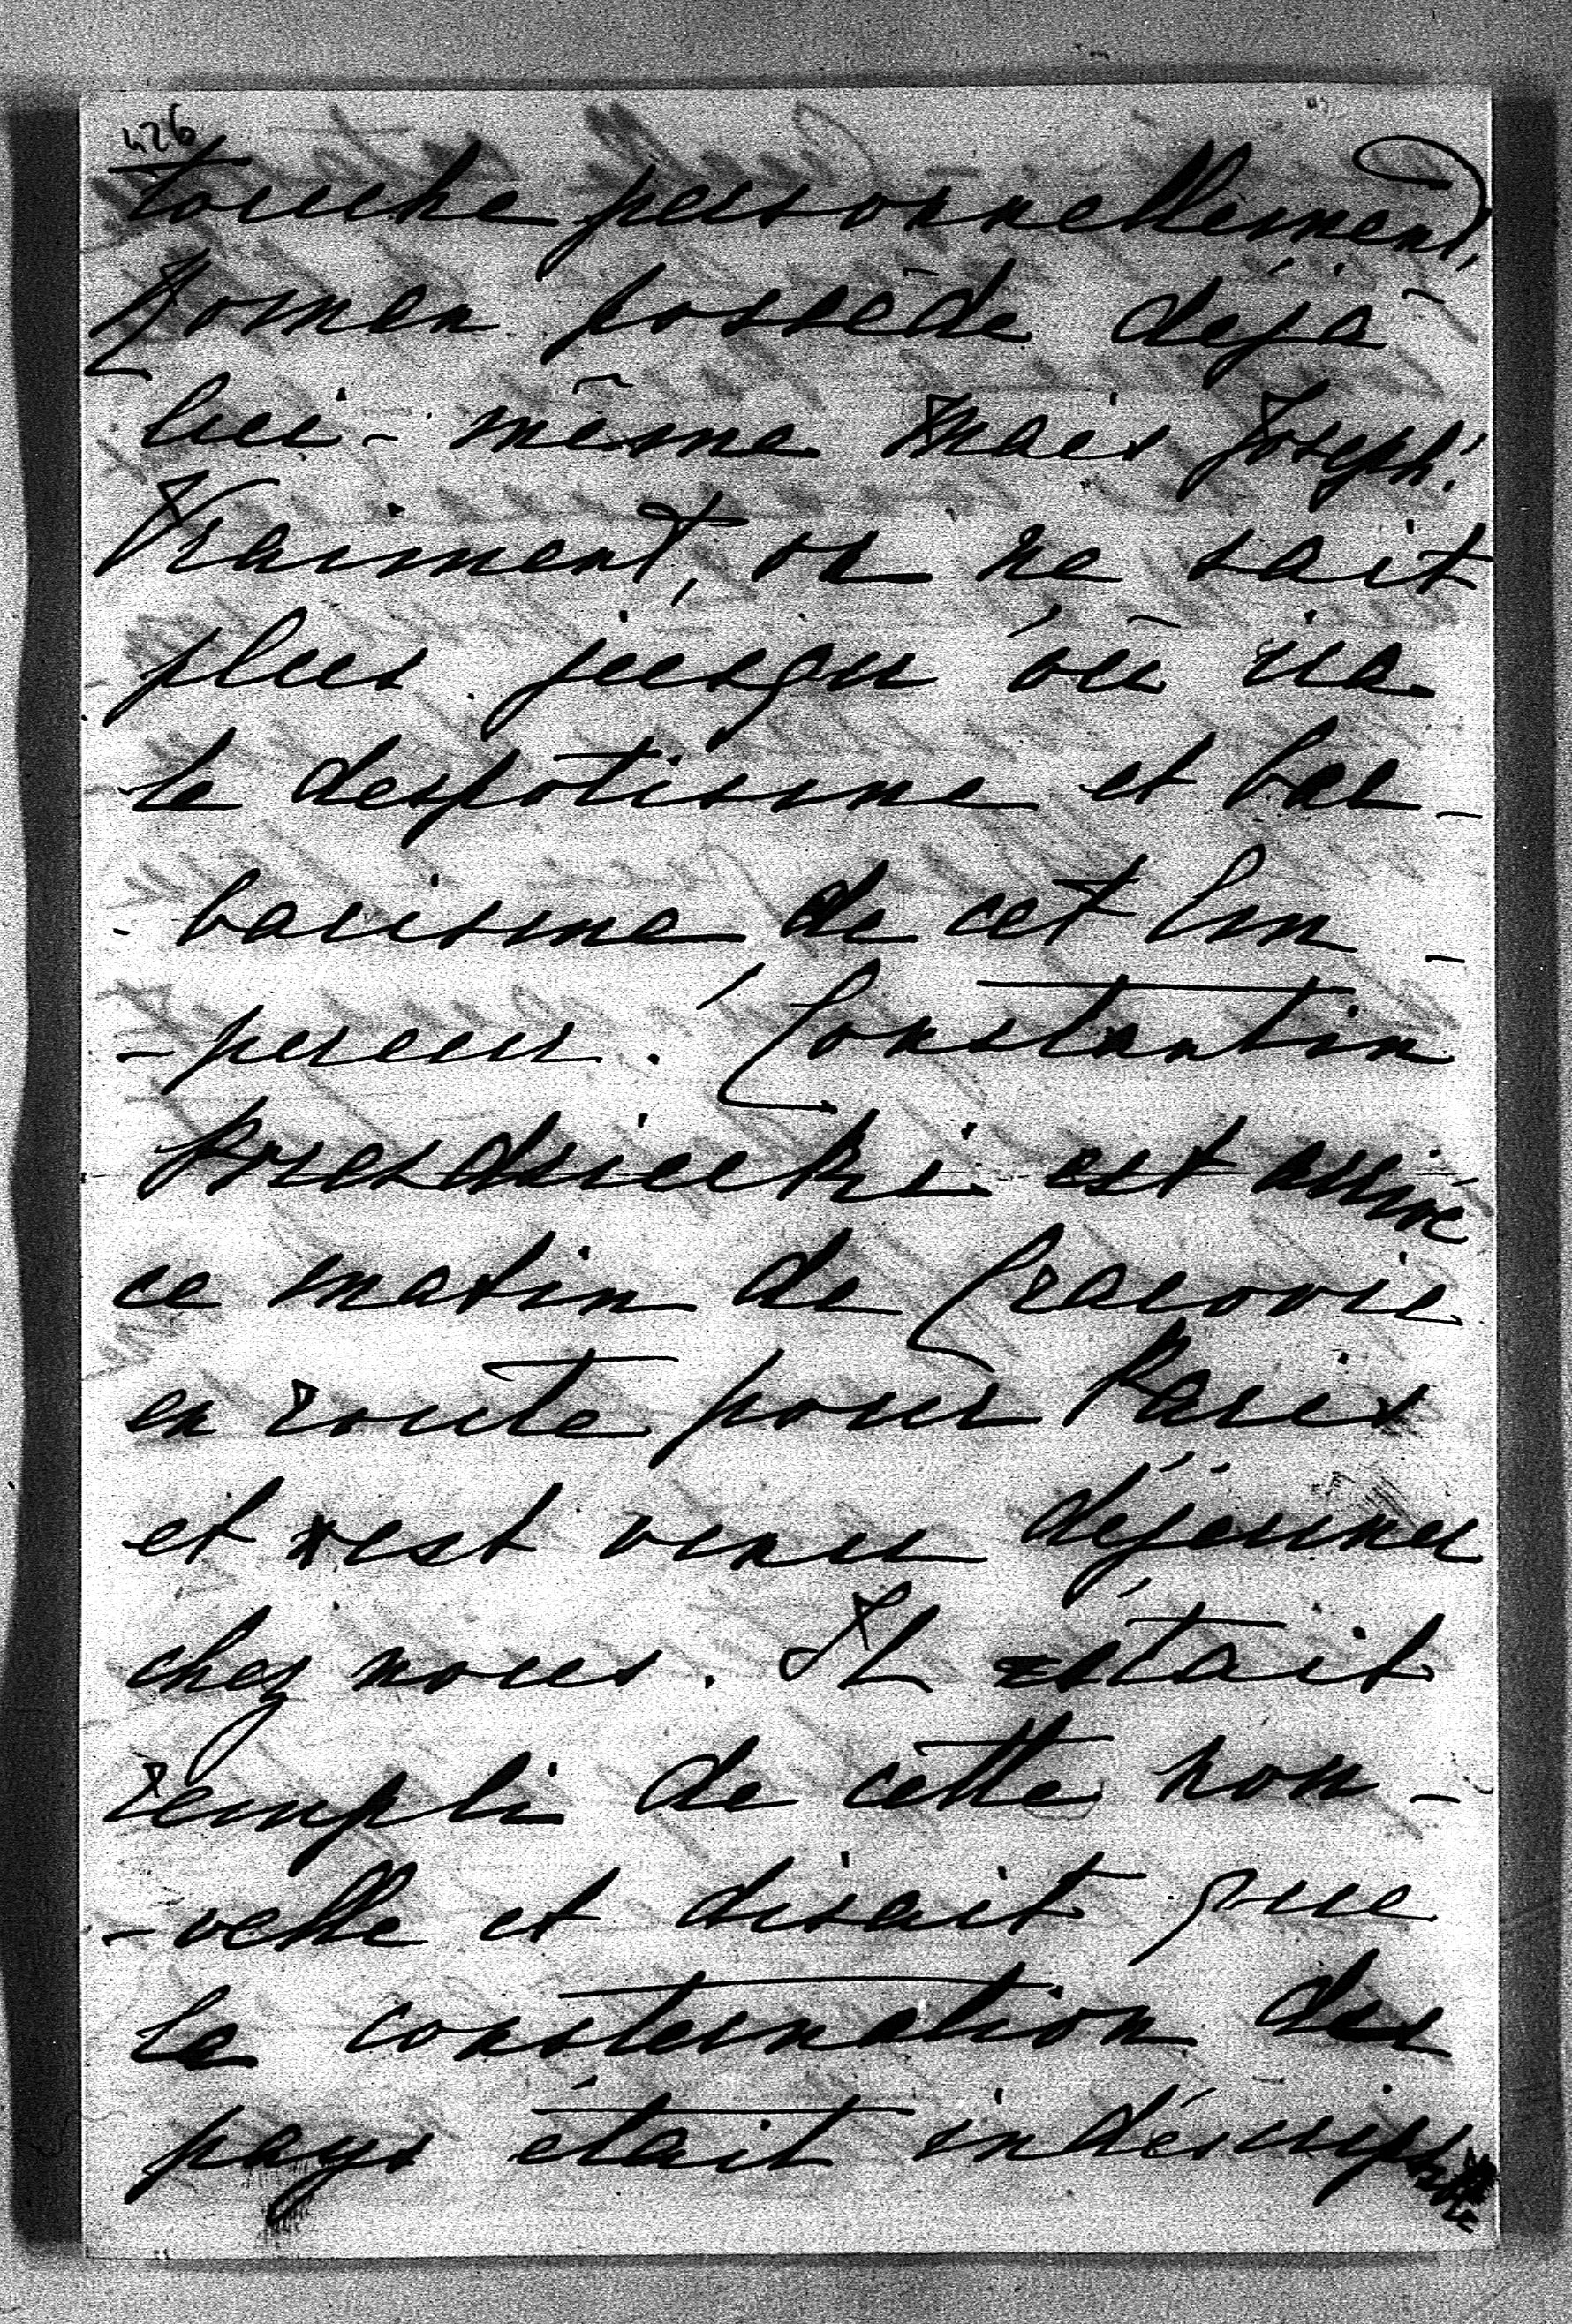 426
touche personnellement,
Romen possède déjà
lui-même mais Joseph!
Vraiment, on ne sait
plus jusqu'où ira
le despotisme et bar-
-barisme de cet Em-
-pereur! Constantin
est arrivé
ce matin de Cracovie
en route pour Paris
et est venu déjeuner
chez nous. Il était
rempli de cette nou-
-velle et disait que
la consternation des
pays était indescriptible